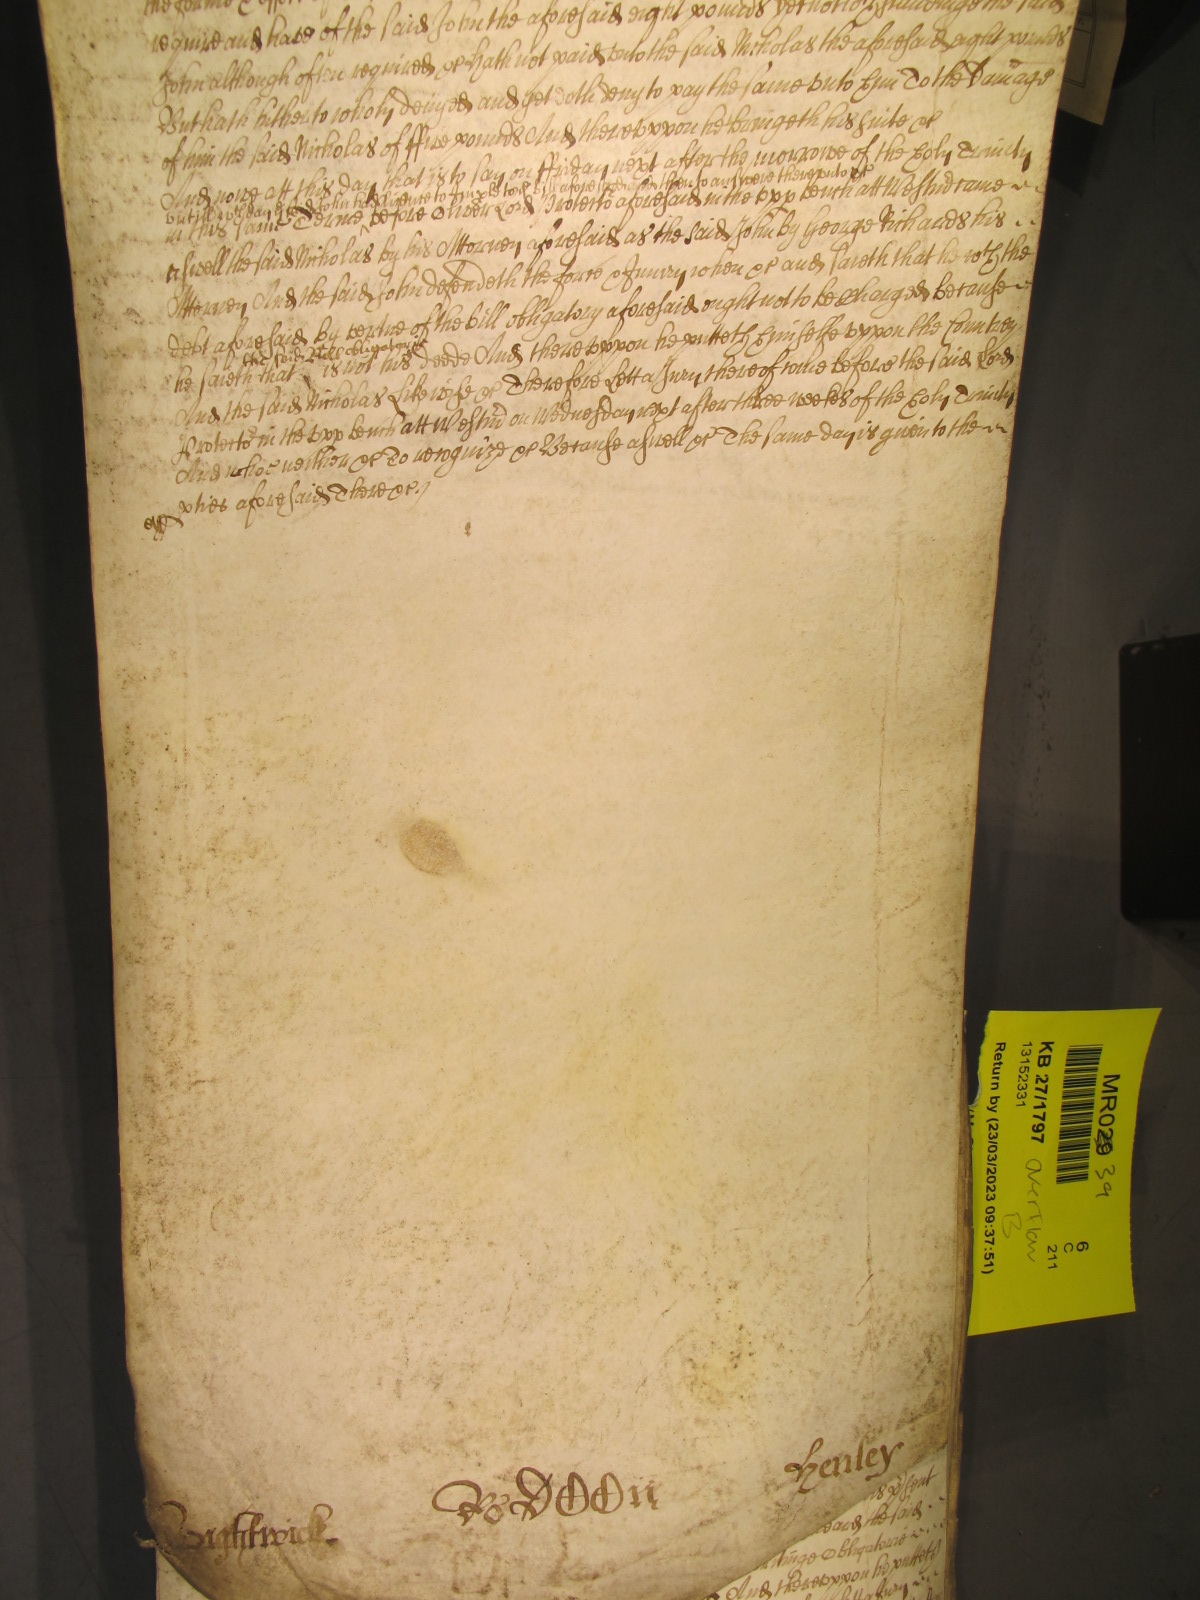 require and have of the said John the aforesaid eight pounds yet
John although often required &c hath not paid unto the said Nicholas the aforesaid eight pounds
But hath hitherto wholy denyed and yet doth deny to pay the same unto him To the Damage
of him the said Nicholas of ffive pounds And thereuppon he bringeth his suite &c
And nowe att this day that is to say on ffriday next after the morrowe of the holy Trinity
untill which day the said John had licence to the bill aforesaid and then to answere thereunto &c
in this same Terme before Oliver Lord Protector aforesaid in the upp bench att Westmr came
aswell the said Nicholas by his Attorney aforesaid as the said John by George Richards his
Attorney And the said John defendeth the force & Iniury when &c and saieth that he with the
debt aforesaid by vertue of the bill obligatory aforesaid ought not to be Charged because
the said Bill obligatorie
he saieth that is not his deede And thereuppon he putteth himselfe uppon the Countrey
And the said Nicholas Likewise &c Therefore Lett a Jury thereof come before the said Lord
Protector in the upp bench att Westmr on Wednesday next after three weekes of the holy Trinity
And who neither &c To recognize &c Because aswell &c The same day is given to the
pties aforesaid There &c
Henley
Rightwick
ns psent
eard the said
tinge Obligatorie
And thereuppon he putteth
MR029 39
KB 27/1797 overflow
13152331 B
Return by (23/03/2023 09:37:51)
6
C
211